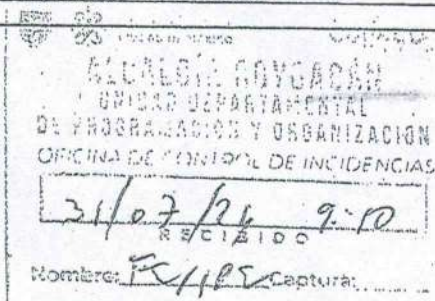 ALCALDÍA COYOACÁN
UNIDAD DEPARTAMENTAL
DE PROGRAMACIÓN Y ORGANIZACIÓN
OFICINA DE CONTROL DE INCIDENCIAS
31/07/24 9:10
RECIBIDO
Nombre: Felipe Captura: